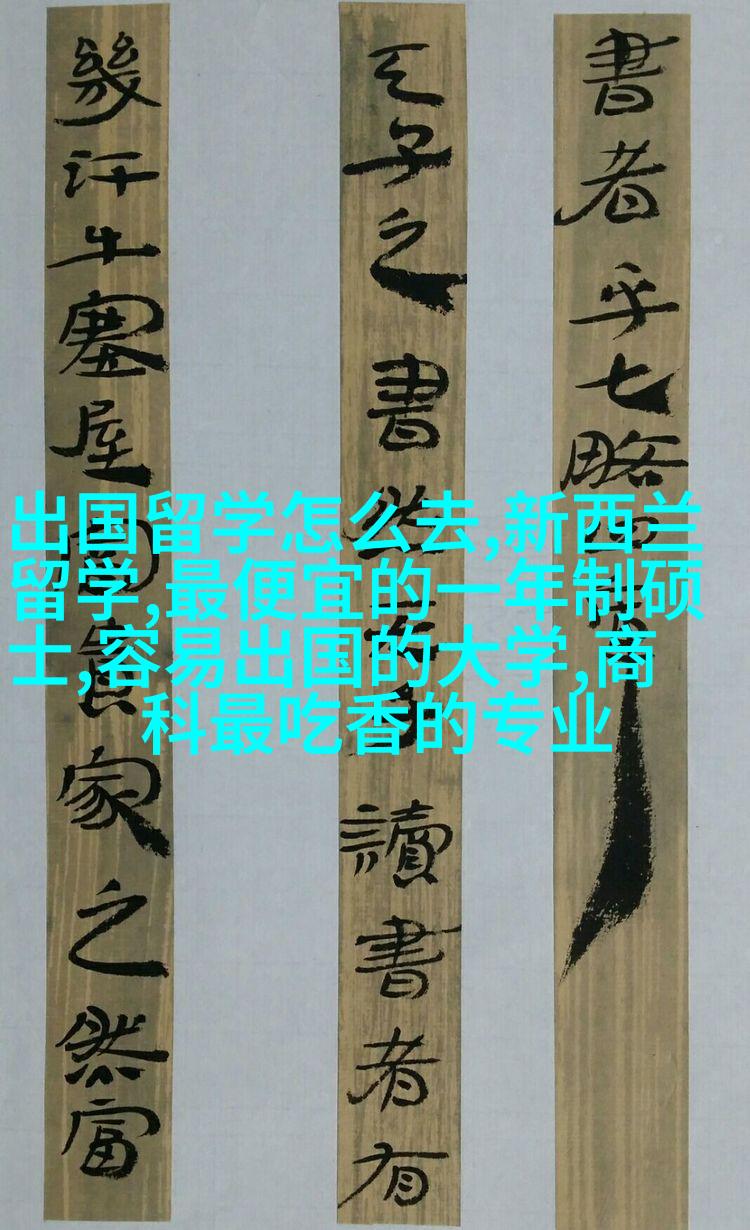 書者乎七略四
天子之書然天子讀書者有
幾汗牛塞屋富貴家之然富
出国留学怎么去,新西兰
留学,最便宜的一年制硕
士,容易出国的大学,商
科最吃香的专业